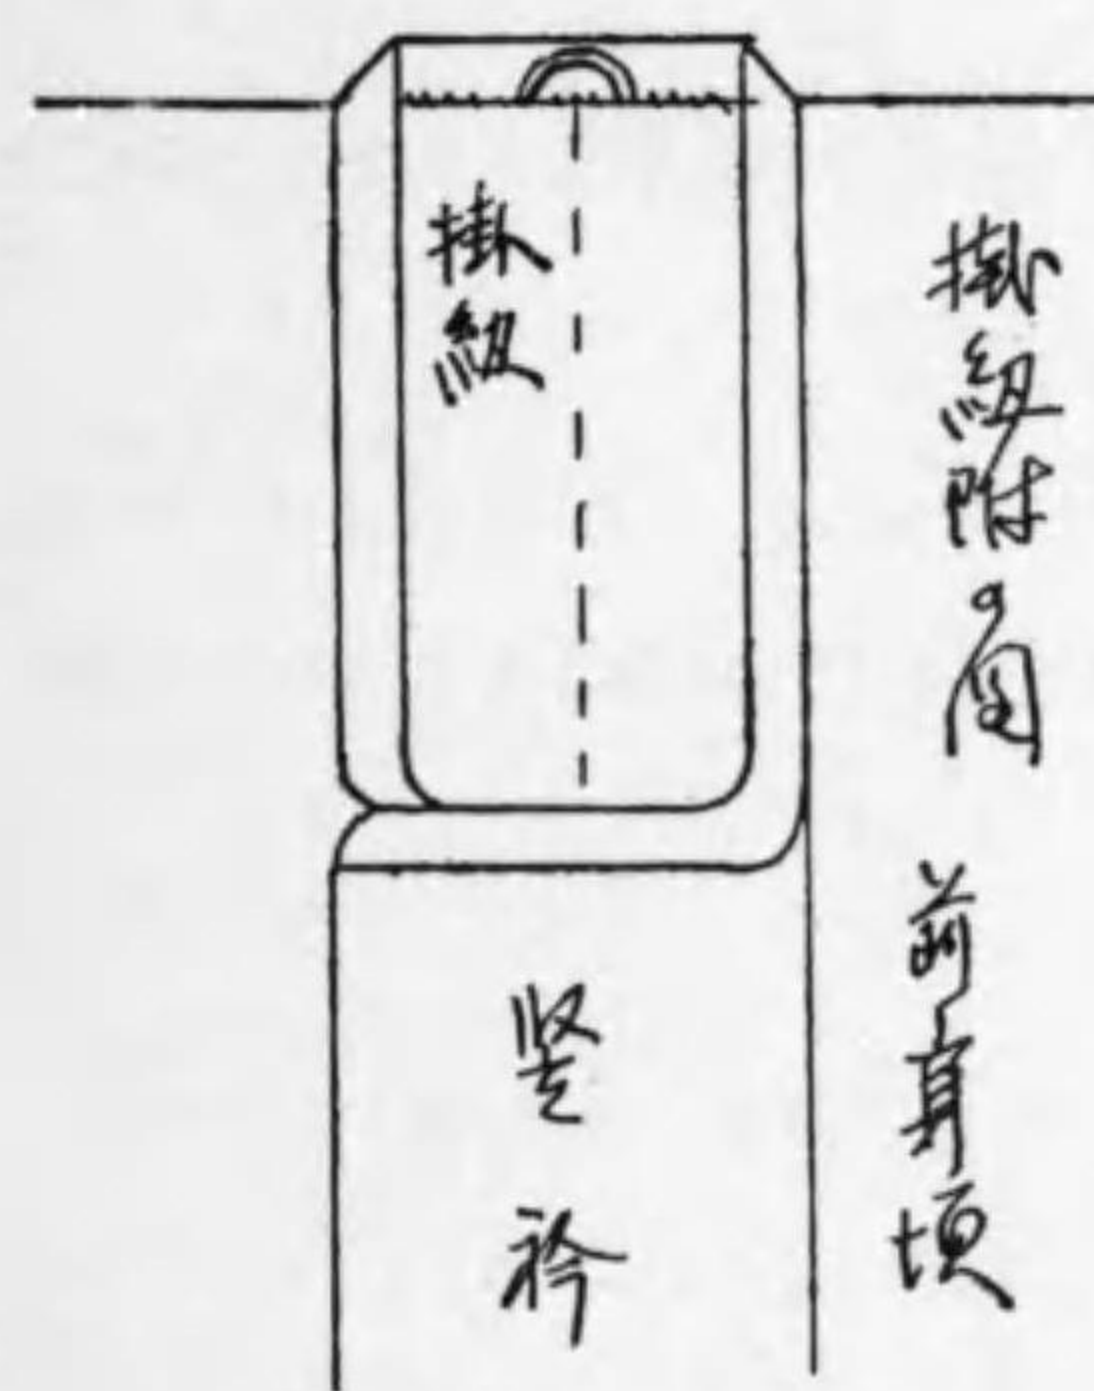 掛紐附の
前身頃
掛紐
竪衿